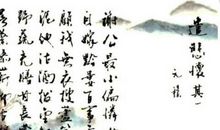 遣悲懷其一
元稹
謝公最小偏憐
自嫁黔婁百事
顧我無衣搜藎
泥他沽酒拔金
野蔬充膳甘長